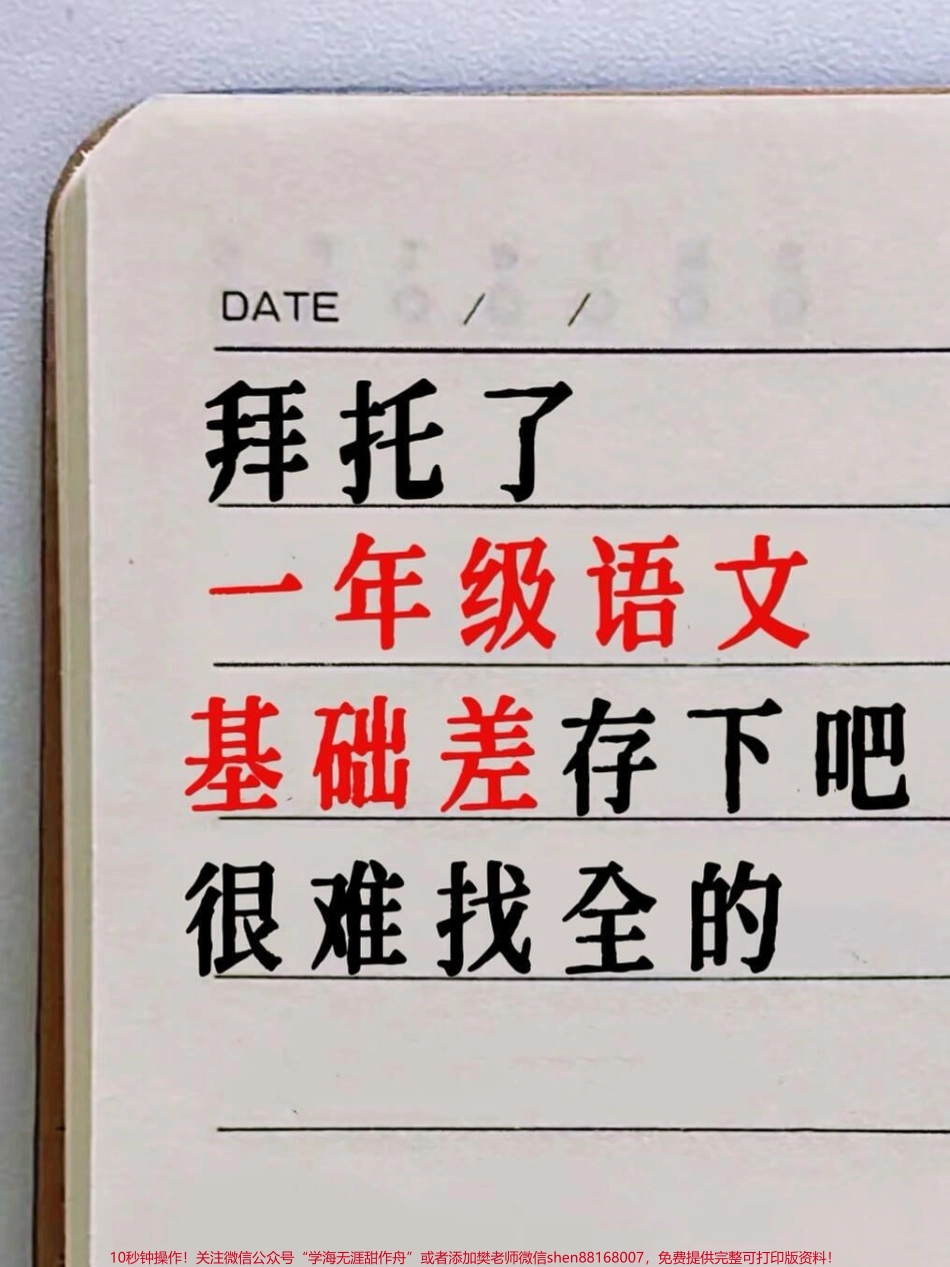 DATE / /
拜托了
一年级语文
基础差存下吧
很难找全的
10秒钟操作！关注微信公众号“学海无涯甜作舟”或者添加樊老师微信shen88168007，免费提供完整可打印版资料！